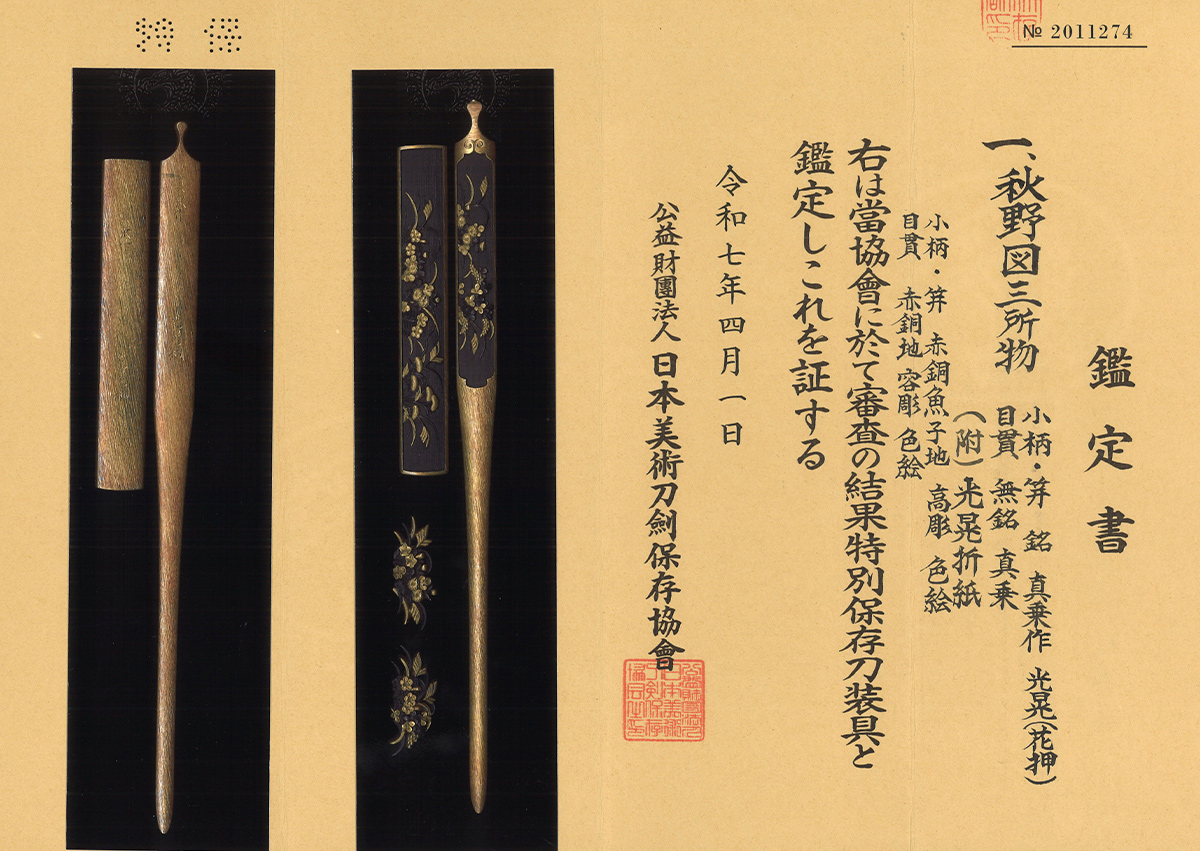 特 保
№ 2011274
鑑定書
一、秋野図三所物
小柄・笄 銘 真乗作 光晃(花押)
目貫 無銘 真乗
(附)光晃折紙
小柄・笄 赤銅魚子地 高彫 色絵
目貫 赤銅地 容彫 色絵
右は當協會に於て審査の結果特別保存刀装具と
鑑定しこれを証する
令和七年四月一日
公益財團法人 日本美術刀劍保存協會